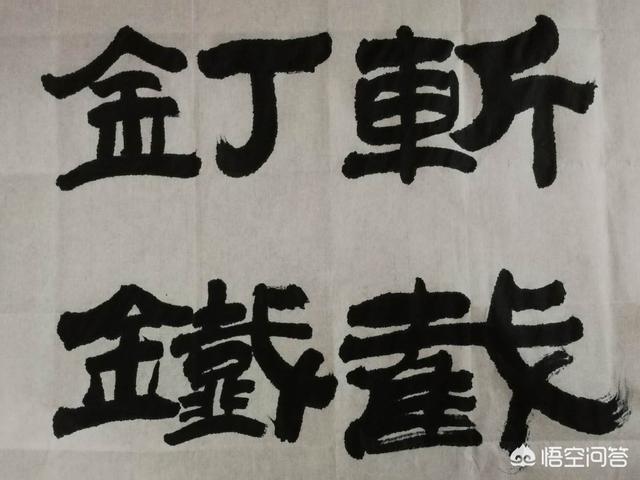 斬釘
截鐵
悟空问答